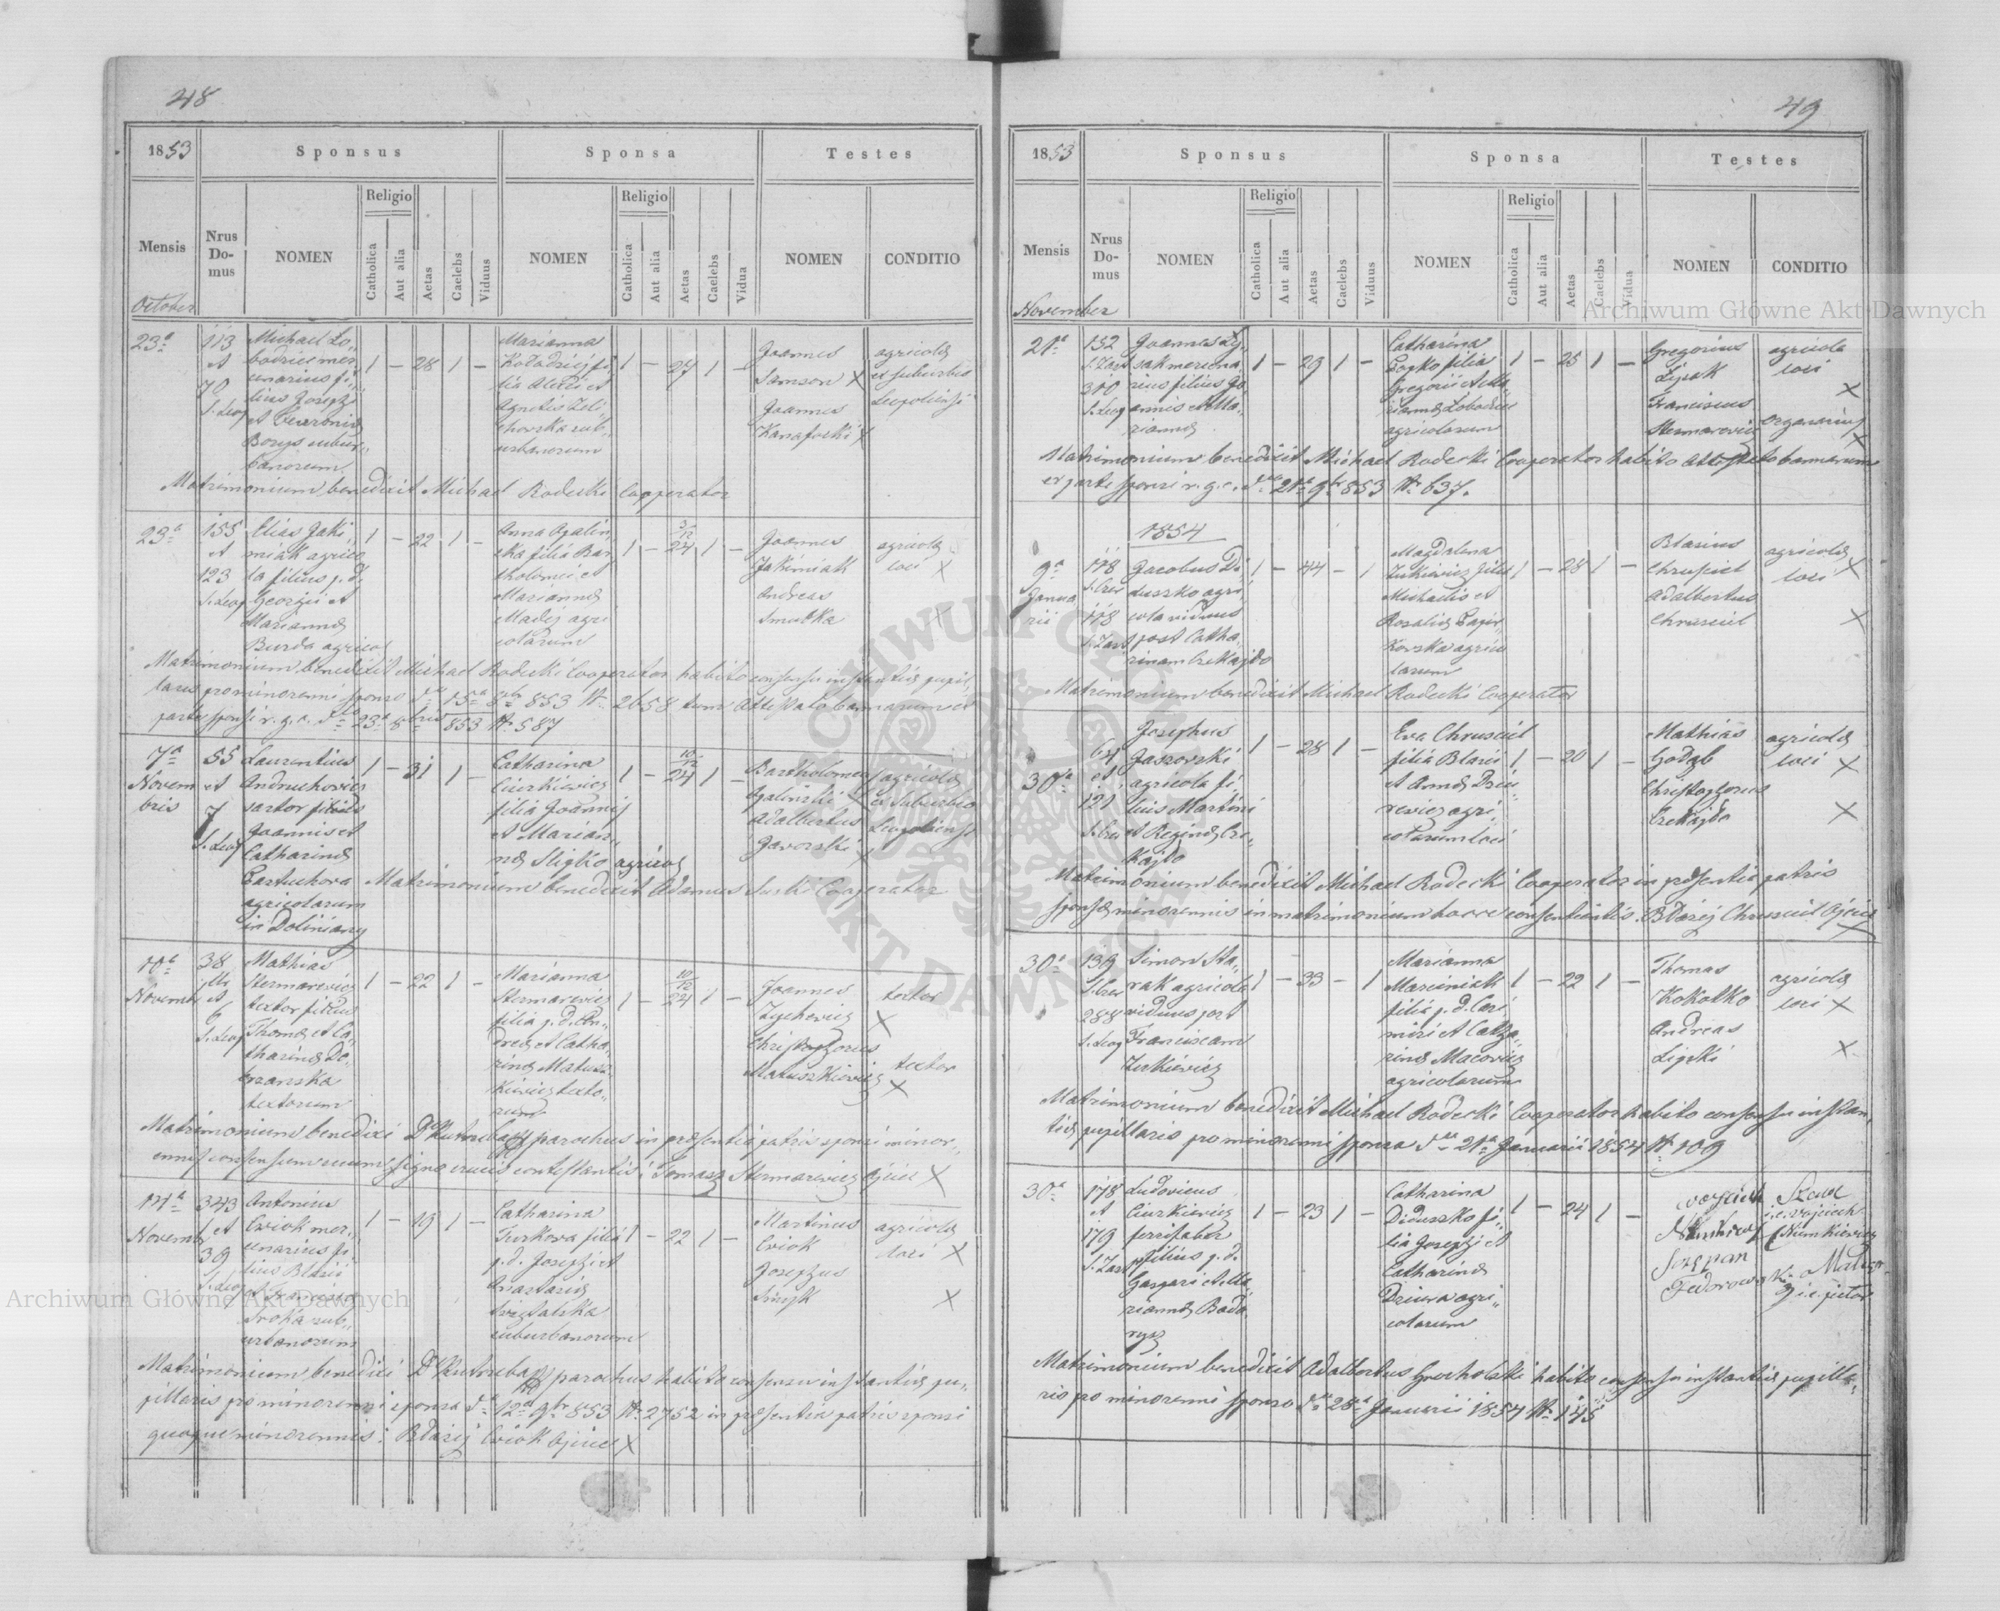 48
1853
Sponsus
Sponsa
Testes
Mensis
Nrus Domus
NOMEN
Religio
Catholica
Aut alia
Aetas
Caelebs
Viduus
NOMEN
Religio
Catholica
Aut alia
Aetas
Caelebs
Vidua
NOMEN
CONDITIO
October
23a
113
et
70
S. Leop
Michael Lo,,
bodzic mer,,
cenarius fi,,
lius Josephi
et
Borys subur,,
banorum
1 - 28 1 -
Marianna
Kołodziej fi,,
lia Alexii et
Agnetis Zeli,,
chowska sub,,
urbanorum
1 - 24 1 -
Joannes
Samson X
Joannes
Kanafocki X
agricolae
ex suburbio
Leopoliensi
Matrimonium benedixit Michael Radecki Cooperator
23a
155
et
123
S. Leop
Elias Jaki,,
miak agrico
la filius p. d.
Georgii et
Mariannae
Burda agricol
1 - 22 1 -
Anna Opaliń,,
ska filia Bar
tholomei et
Mariannae
Madej agri
colarum
1 - 24 1 -
Joannes
Jakimiak
Andreas
Smutka
agricolae
loci X
X
Matrimonium benedixit Michael Radecki Cooperator habito consensu instantiae pupil,,
laris pro minorenni sponso dto 15a 853 Nr 2658 tum attestato bannorum ex
parte sponsi r. g. c. dto 23a 8bris 853 Nr 587
7a
Novem
bris
55
et
7
S. Leop
Laurentius
Andruchowicz
sartor filius
Joannis et
Catharinae
Bartuchova
agricolarum
in Doliniany
1 - 31 1 -
Catharina
Ciurkiewicz
filia Joannis
et Marian,,
nae Sligko agricol
10/12
1 - 24 1 -
Bartholomeus
Opaliński
Adalbertus
Jaworski X
agricolae
ex suburbio
Leopoliensi
Matrimonium benedixit Adamus Surki Cooperator
10a
Novemb
38
et
6
S. Leop
Mathias
Stermarewicz
textor filius
Thomae et Ca,,
tharinae Do,,
brzanska
textorum
1 - 22 1 -
Marianna
Stermarewicz
filia p. d. An,,
dreae et Catha,,
rinae Matusz,,
kiewicz texto,,
rum
10/12
1 - 24 1 -
Joannes
Zychowicz
Christophorus
Matuszkiewicz
textor
X
textor
X
Matrimonium benedixi parochus in praesentia patris sponsi minor,,
ennis consensum suum signo crucis contestantis: Tomasz Stermarewicz Ojciec X
14a
Novemb
343
et
39
S. Leop
Antonius
Cwiok mer,,
cenarius fi,,
lius Blasii
et Franciscae
Sroka sub,,
urbanorum
1 - 19 1 -
Catharina
Turkowa filia
p. d. Josephi et
Anastasiae
suburbanorum
1 - 22 1 -
Martinus
Cwiok
Josephus
Smyk
agricolae
loci X
X
Matrimonium benedixi parochus habito consensu instantiae pu,,
pillaris pro minorenni sponsa dto 12a 9br 853 Nr 2752 in praesentia patris sponsi
quoque minorennis: Błażej Cwiok Ojciec X
49
1853
Sponsus
Sponsa
Testes
Mensis
Nrus Domus
NOMEN
Religio
Catholica
Aut alia
Aetas
Caelebs
Viduus
NOMEN
Religio
Catholica
Aut alia
Aetas
Caelebs
Vidua
NOMEN
CONDITIO
November
21a
152
S. Zast
310
S. Leop
Joannes Ły,,
sak mercena
rius filius Jo
annis et Ma,,
riannae
1 - 29 1 -
Catharina
Łopko filia
Gregorii et Ma,,
riannae Lobodzic
agricolarum
1 - 25 1 -
Gregorius
Łysak
Franciscus
Stermarewicz
agricola
loci
X
organarius
X
Matrimonium benedixit Michael Radecki Cooperator habito attestato bannorum
ex parte sponsi r. g. c. dto 21a 9br 853 Nr 637.
1854
9a
Janua
rii
118
S. Cruc
118
S. Zast
Jacobus Di,,
duszko agri,,
cola viduus
post Catha,,
rinam Czekajdo
1 - 44 - 1
Magdalena
Zukiewicz filia
Michaelis et
Rosaliae Bagiń,,
kowska agrico
larum
1 - 28 1 -
Blasius
Chrusciel
Adalbertus
Chrusciel
agricolae
loci X
X
Matrimonium benedixit Michael Radecki Cooperator
30a
64
et
121
S. Cruc
Josephus
Gaszowski
agricola fi,,
lius Martini
et Reginae Cze,,
kajdo
1 - 28 1 -
Eva Chrusciel
filia Blasii
et Annae Dziu,,
rewicz agri,,
colarum loci
1 - 20 1 -
Mathias
Gołąb
Christophorus
Czekajdo
agricolae
loci X
X
Matrimonium benedixit Michael Radecki Cooperator in praesentia patris
sponsae minorennis in matrimonium hocce consentientis. Błażej Chrusciel Ojciec
X
30a
139
S. Cruc
288
S. Leop
Simon Sta,,
rak agricola
viduus post
Franciscam
Zukiewicz
1 - 33 - 1
Marianna
Marciniak
filia p. d. Casi
miri et Catha,,
rinae Macowicz
agricolarum
1 - 22 1 -
Thomas
Kokotko
Andreas
Lipski
agricolae
loci X
X
Matrimonium benedixit Michael Radecki Cooperator habito consensu instan,,
tiae pupillaris pro minorenni sponsa dto 21a Januarii 1854 Nr 109
30a
178
et
179
S. Zast
Ludovicus
Ciurkiewicz
ferrifaber
filius p. d.
Gaspari et Ma,,
riannae Bada,,
rysz
1 - 23 1 -
Catharina
Diduszko fi,,
lia Josephi et
Catharinae
Dziura agri,,
colarum
1 - 24 1 -
Woyciech
Szczepan
Fedorowski
i.e. Wojciech
Numkiewicz
Matrimonium benedixit Adalbertus Grocholski habito consensu instantiae pupilla,,
ris pro minorenni sponso dto 28a Januarii 1854 Nr 145
Archiwum Główne Akt Dawnych
Archiwum Główne Akt Dawnych
ARCHIWUM GŁÓWNE AKT DAWNYCH